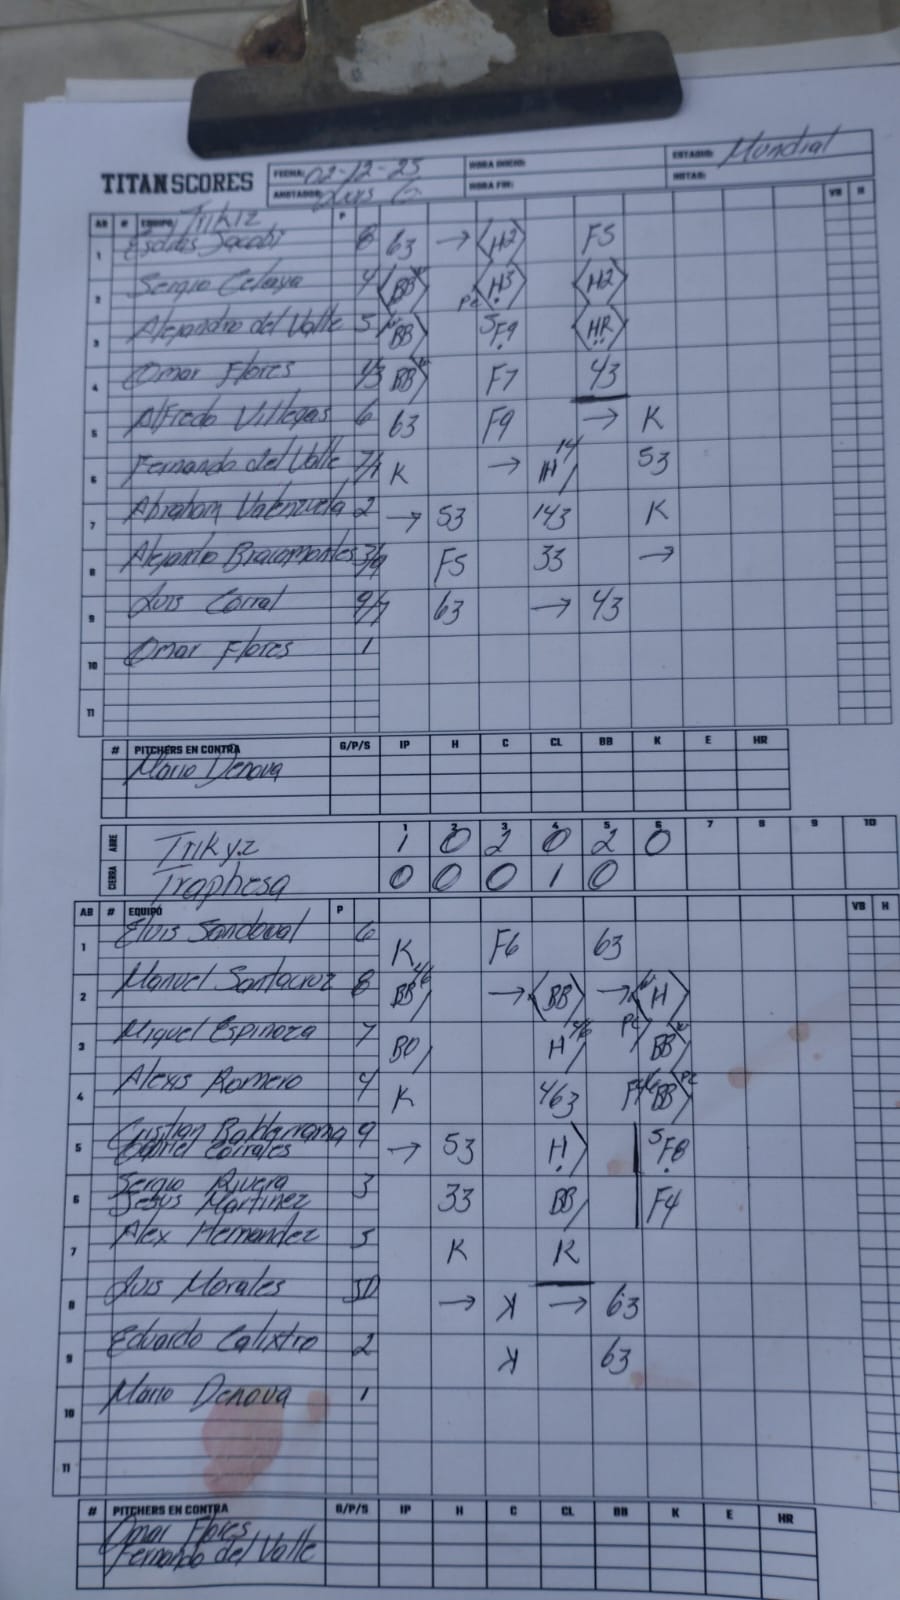 TITAN SCORES
FECHA: 02-12-25 HORA INICIO: ESTADIO: Mundial
ANOTADOR: Luis G. HORA FIN: NOTAS:
AB # EQUIPO Trikiz P VB H
1 Esdras Jacobi 8 63 → H2 F5
2 Sergio Celaya 4 BB H3 H2
3 Alejandro del Valle 5 BB SF9 HR
4 Omar Flores 1/3 BB F7 43
5 Alfredo Villegas 6 63 F9 → K
6 Fernando del Valle 7/1 K → IH 14 53
7 Abraham Valenzuela 2 → 53 143 K
8 Alejandro Bracamontes 3/9 F5 33 →
9 Luis Corral 9/7 63 → 43
10 Omar Flores 1
11
# PITCHERS EN CONTRA G/P/S IP H C CL BB K E HR
Mario Denova
1 2 3 4 5 6 7 8 9 10
ABRE Trikyz 1 0 2 0 2 0
CIERRA Traphesa 0 0 0 1 0
AB # EQUIPO P VB H
1 Elvis Sandoval 6 K F6 63
2 Manuel Santacruz 8 BB 4/6 → BB → H
3 Miguel Espinoza 7 BO H 4/6 BB
4 Alexis Romero 4 K 463 BB
5 Cristian Balderrama 9 → 53 H SF8
Gabriel Corrales
6 Sergio Rivera 3 33 BB F4
Jesus Martinez
7 Alex Hernandez 5 K K
8 Luis Morales → K → 63
9 Eduardo Calixtro 2 K 63
10 Mario Denova 1
11
# PITCHERS EN CONTRA G/P/S IP H C CL BB K E HR
Omar Flores
Fernando del Valle